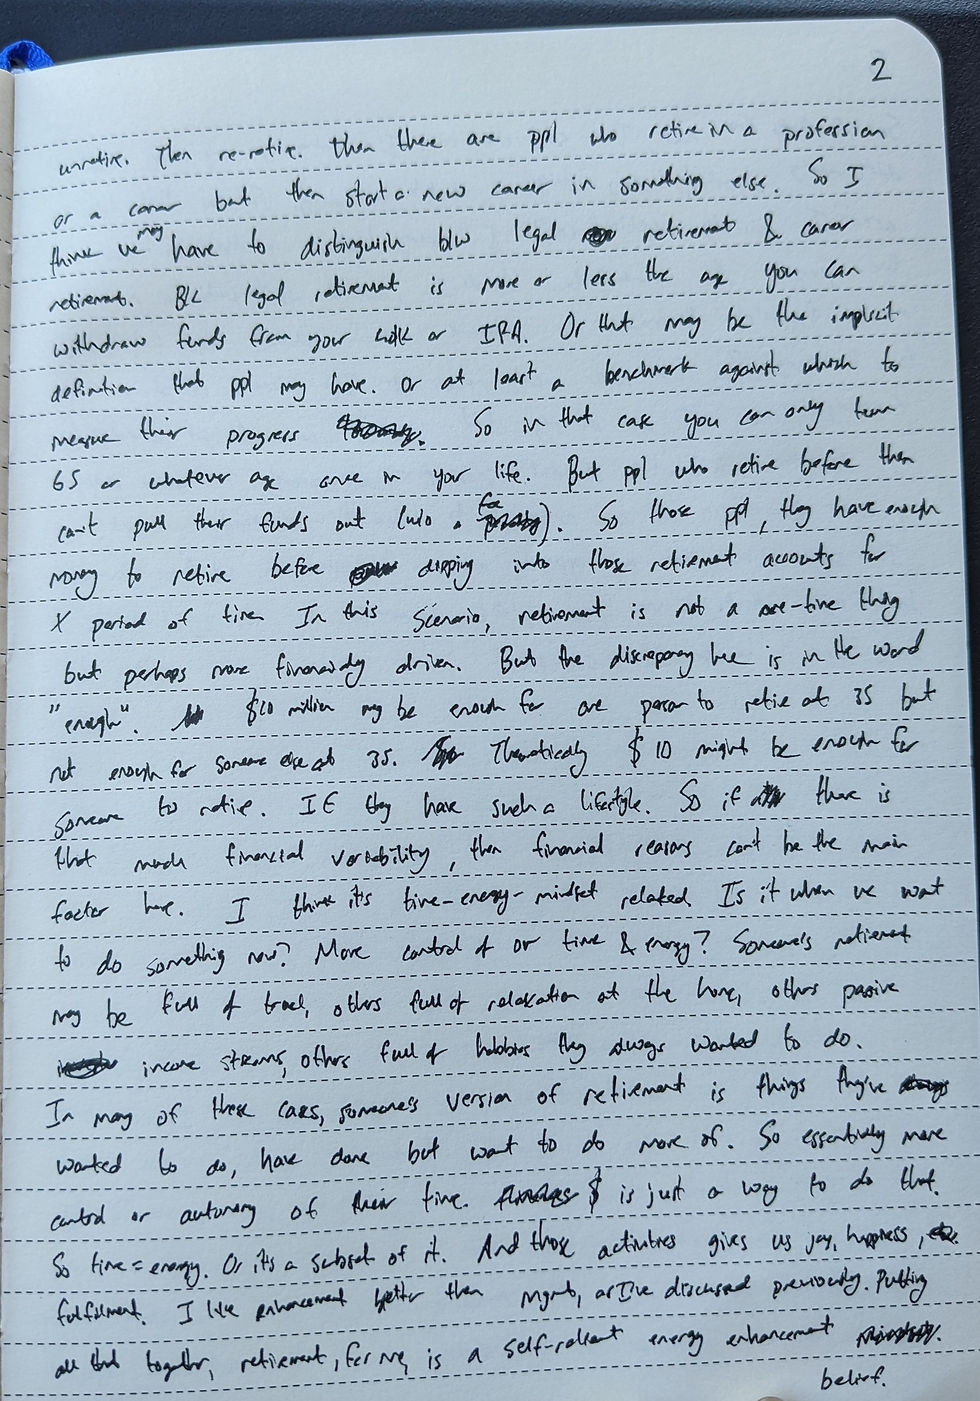 2
unretire. Then re-retire. Then there are ppl who retire in a profession
or a career but then start a new career in something else. So I
think we may have to distinguish b/w legal retirement & career
retirement. B/c legal retirement is more or less the age you can
withdraw funds from your 401k or IRA. Or that may be the implicit
definition that ppl may have. Or at least a benchmark against which to
measure their progress. So in that case you can only turn
65 or whatever age once in your life. But ppl who retire before then
can't pull their funds out (w/o a fee). So those ppl, they have enough
money to retire before dipping into those retirement accounts for
X period of time. In this scenario, retirement is not a one-time thing
but perhaps more financially driven. But the discrepancy here is in the word
"enough". $10 million may be enough for one person to retire at 35 but
not enough for someone else at 35. Theoretically $10 might be enough for
someone to retire. If they have such a lifestyle. So if there is
that much financial variability, then financial reasons can't be the main
factor here. I think it's time-energy-mindset related. Is it when we want
to do something new? More control of or time & energy? Someone's retirement
may be full of travel, others full of relaxation at the home, others passive
income streams, others full of hobbies they always wanted to do.
In many of these cases, someone's version of retirement is things they've
wanted to do, have done but want to do more of. So essentially more
control or autonomy of their time. $ is just a way to do that.
So time = energy. Or it's a subset of it. And those activities gives us joy, happiness,
fulfillment. I like enhancement better than mgmt, as I've discussed previously. Putting
all that together, retirement, for me, is a self-reliant energy enhancement
belief.